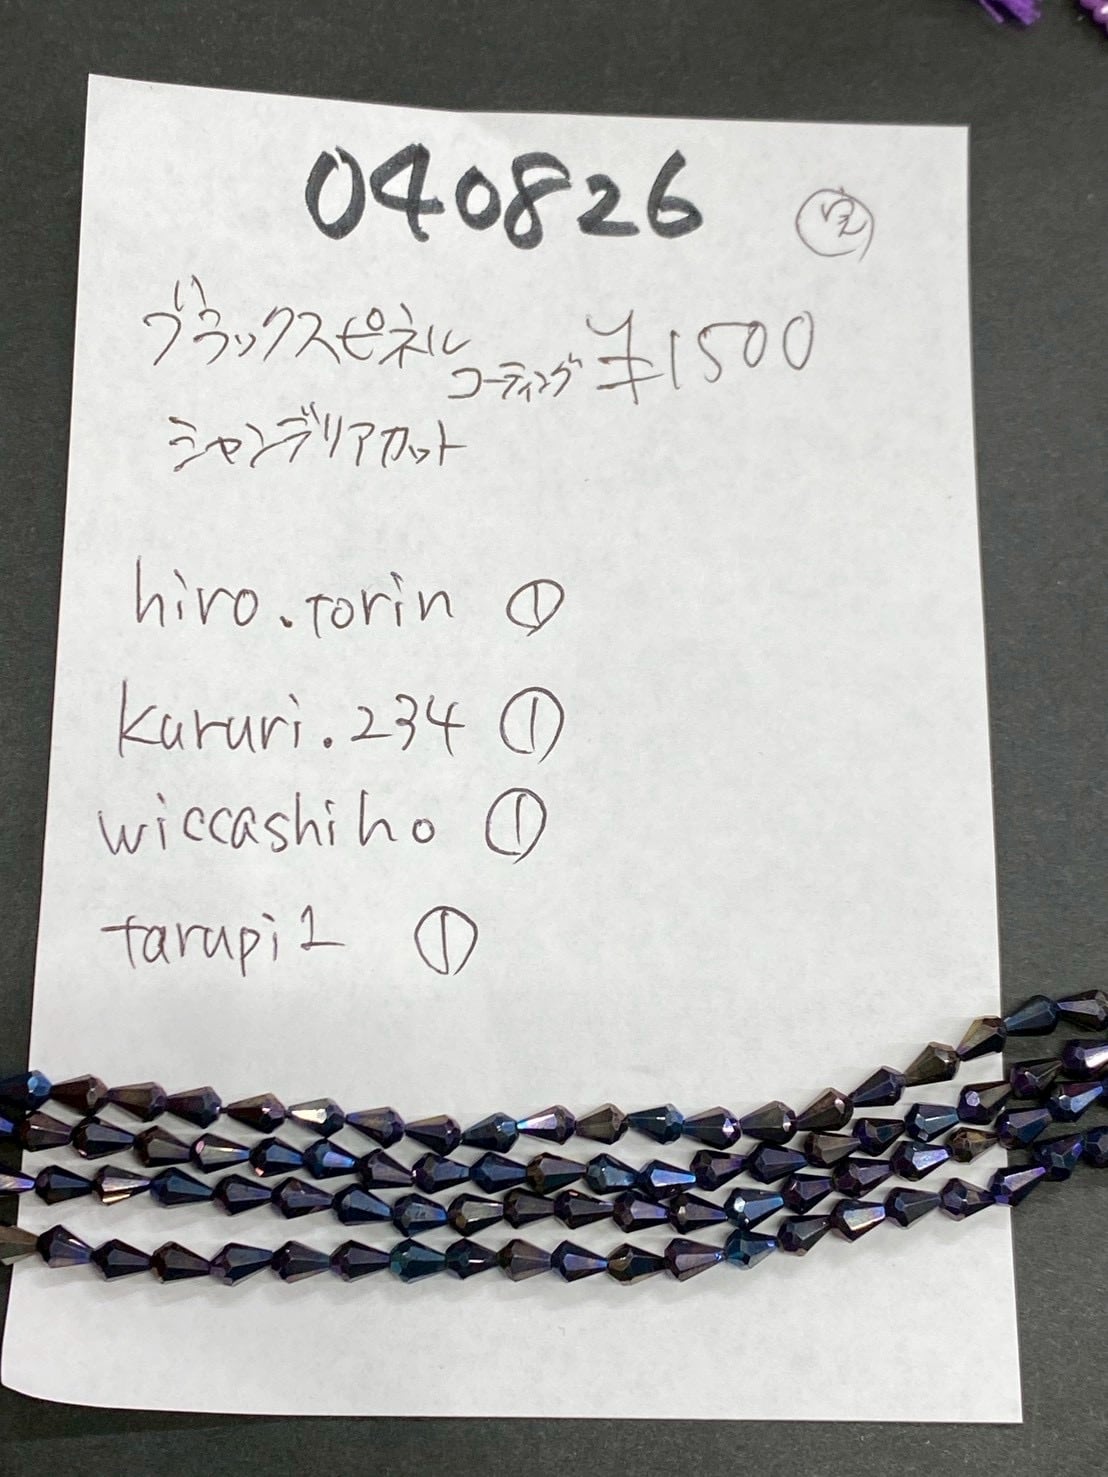 040826
ブラックスピネル
コーティング ¥1500
シャンデリアカット
hiro.torin ①
kururi.234 ①
wiccashiho ①
tarupi1 ①